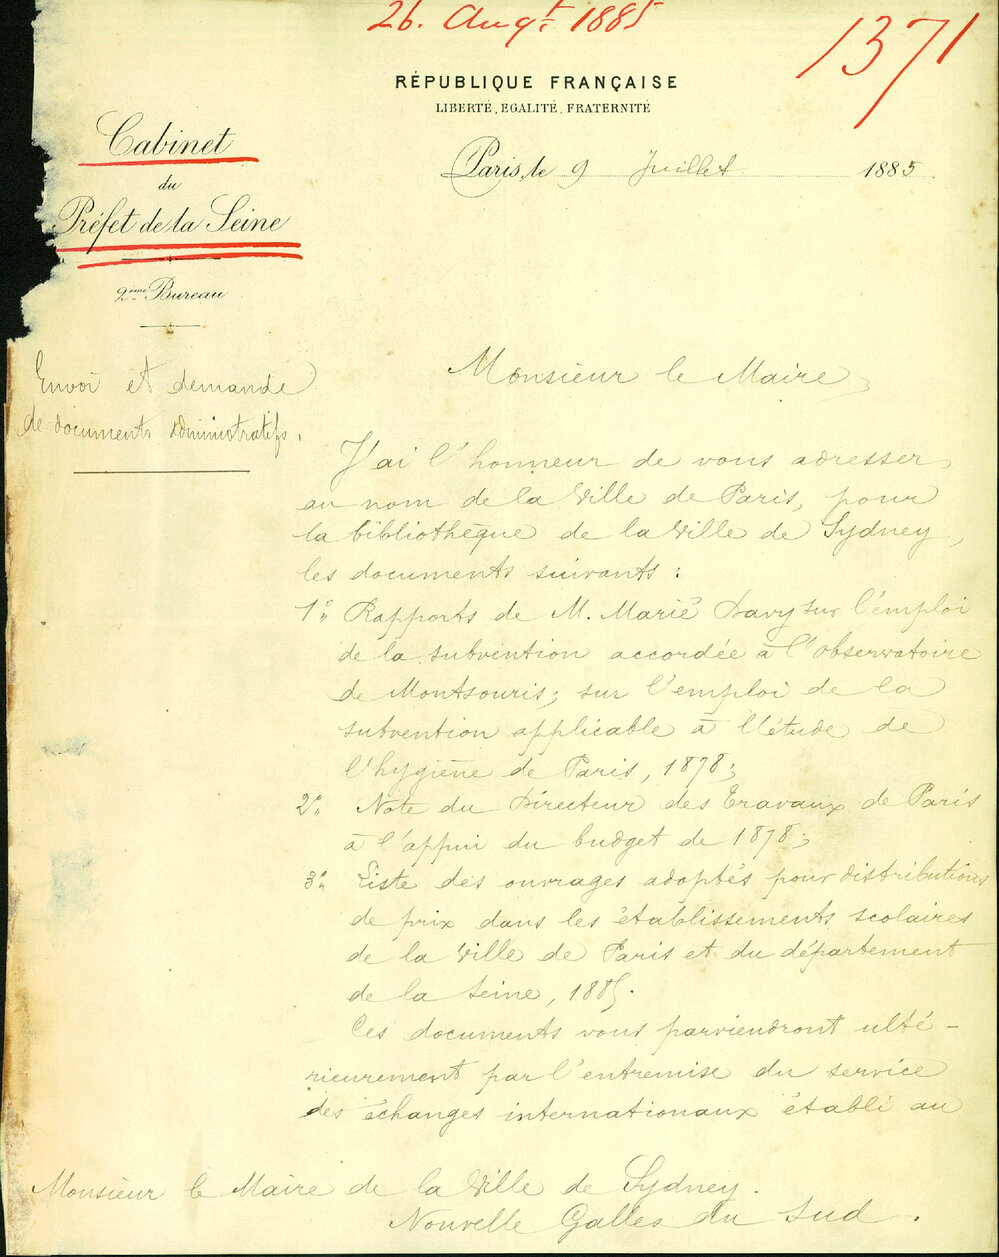 26. Augt 1885
1371
RÉPUBLIQUE FRANÇAISE
LIBERTÉ, ÉGALITÉ, FRATERNITÉ
Cabinet
du
Préfet de la Seine
2ème Bureau
Paris, le 9 Juillet 1885
Envoi et demande
de documents administratifs.
Monsieur le Maire,
J'ai l'honneur de vous adresser,
au nom de la Ville de Paris, pour
la bibliothèque de la Ville de Sydney,
les documents suivants :
1º Rapports de M. Marié Davy sur l'emploi
de la subvention accordée à l'Observatoire
de Montsouris; sur l'emploi de la
subvention applicable à l'étude de
l'hygiène de Paris, 1878;
2º Note du Directeur des Travaux de Paris
à l'appui du budget de 1878;
3º Liste des ouvrages adoptés pour distributions
de prix dans les établissements scolaires
de la Ville de Paris et du département
de la Seine, 1885.
Ces documents vous parviendront ulté-
rieurement par l'entremise du service
des échanges internationaux établi au
Monsieur le Maire de la Ville de Sydney.
Nouvelle Galles du Sud.